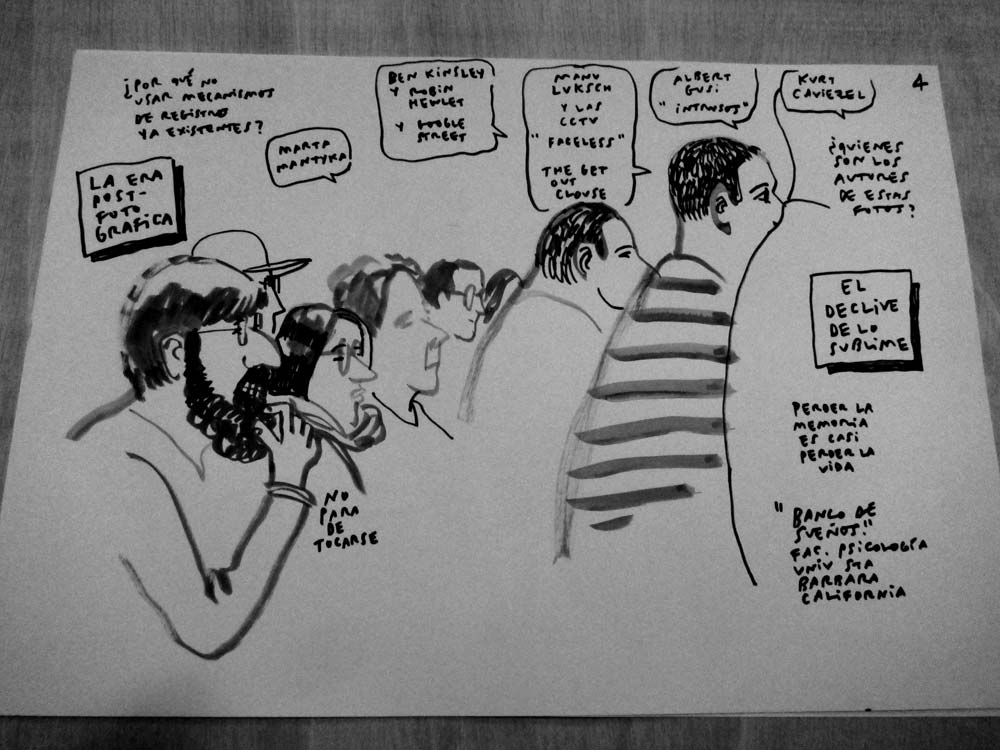 ¿POR QUÉ NO
USAR MECANISMOS
DE REGISTRO
YA EXISTENTES?
MARTA
MANTYKA
BEN KINSLEY
Y ROBIN
HEWLET
Y GOOGLE
STREET
MANU
LUKSCH
Y LAS
CCTV
"FACELESS"
THE GET
OUT
CLOUSE
ALBERT
GUSI
"INTRUSOS"
KURT
CAVIEZEL
4
LA ERA
POST-
FOTO
GRÁFICA
¿QUIENES
SON LOS
AUTORES
DE ESTAS
FOTOS?
EL
DECLIVE
DE LO
SUBLIME
NO
PARA
DE
TOCARSE
PERDER LA
MEMORIA
ES CASI
PERDER LA
VIDA
"BANCO DE
SUEÑOS"
FAC. PSICOLOGÍA
UNIV STA
BARBARA
CALIFORNIA